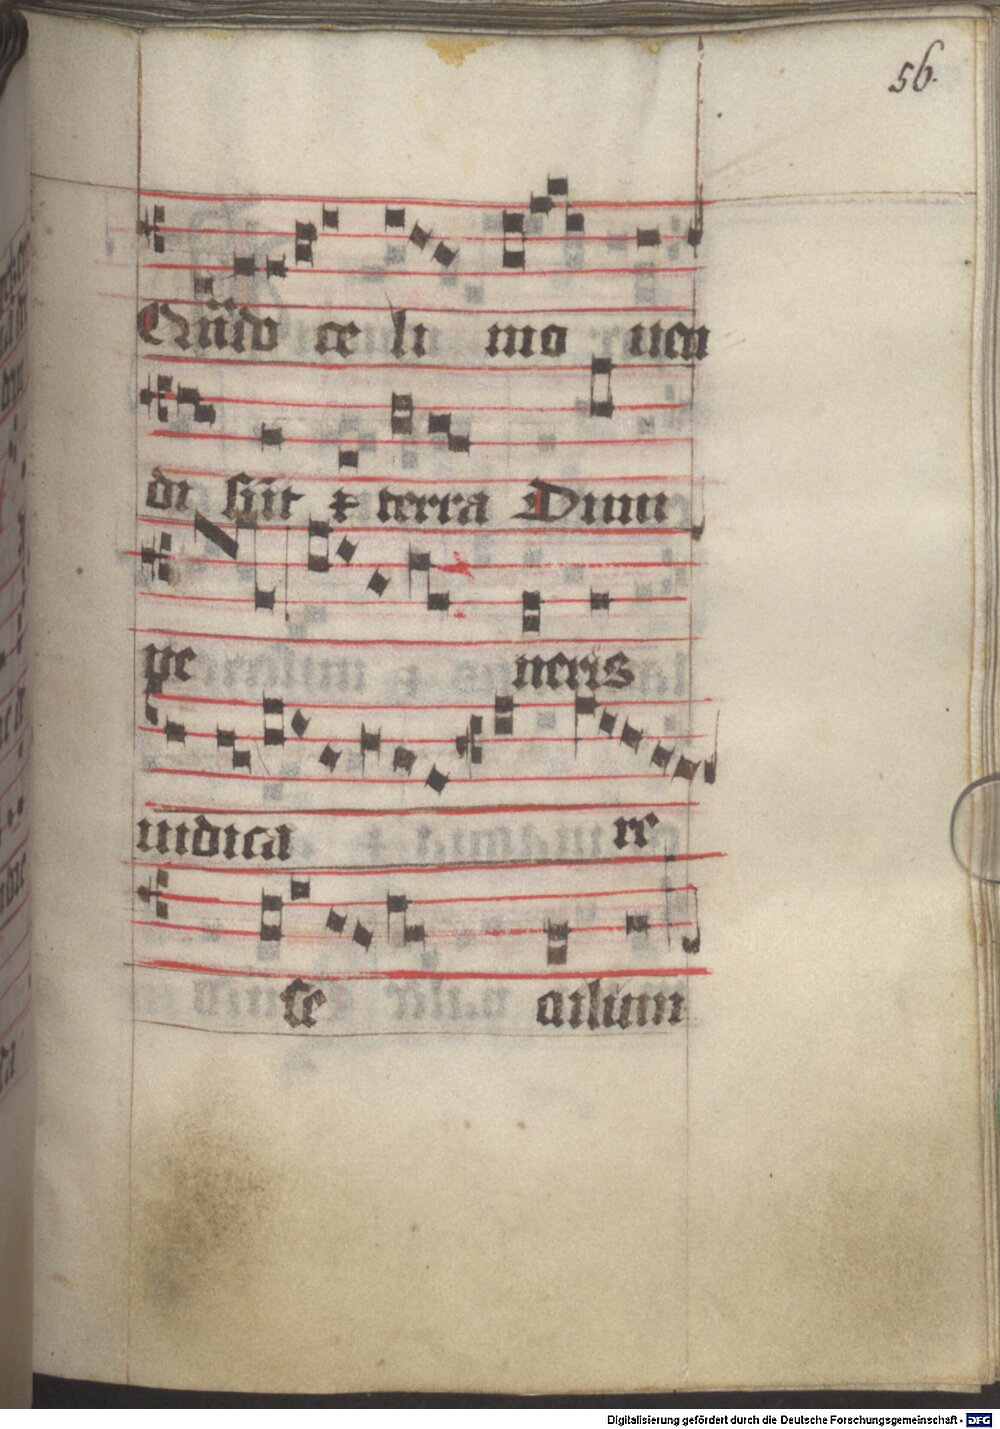 56.
Qn̄do ce li mo uen
di sūt ⁊ terra Dum
ue neris
iudica re
se culum
Digitalisierung gefördert durch die Deutsche Forschungsgemeinschaft - DFG